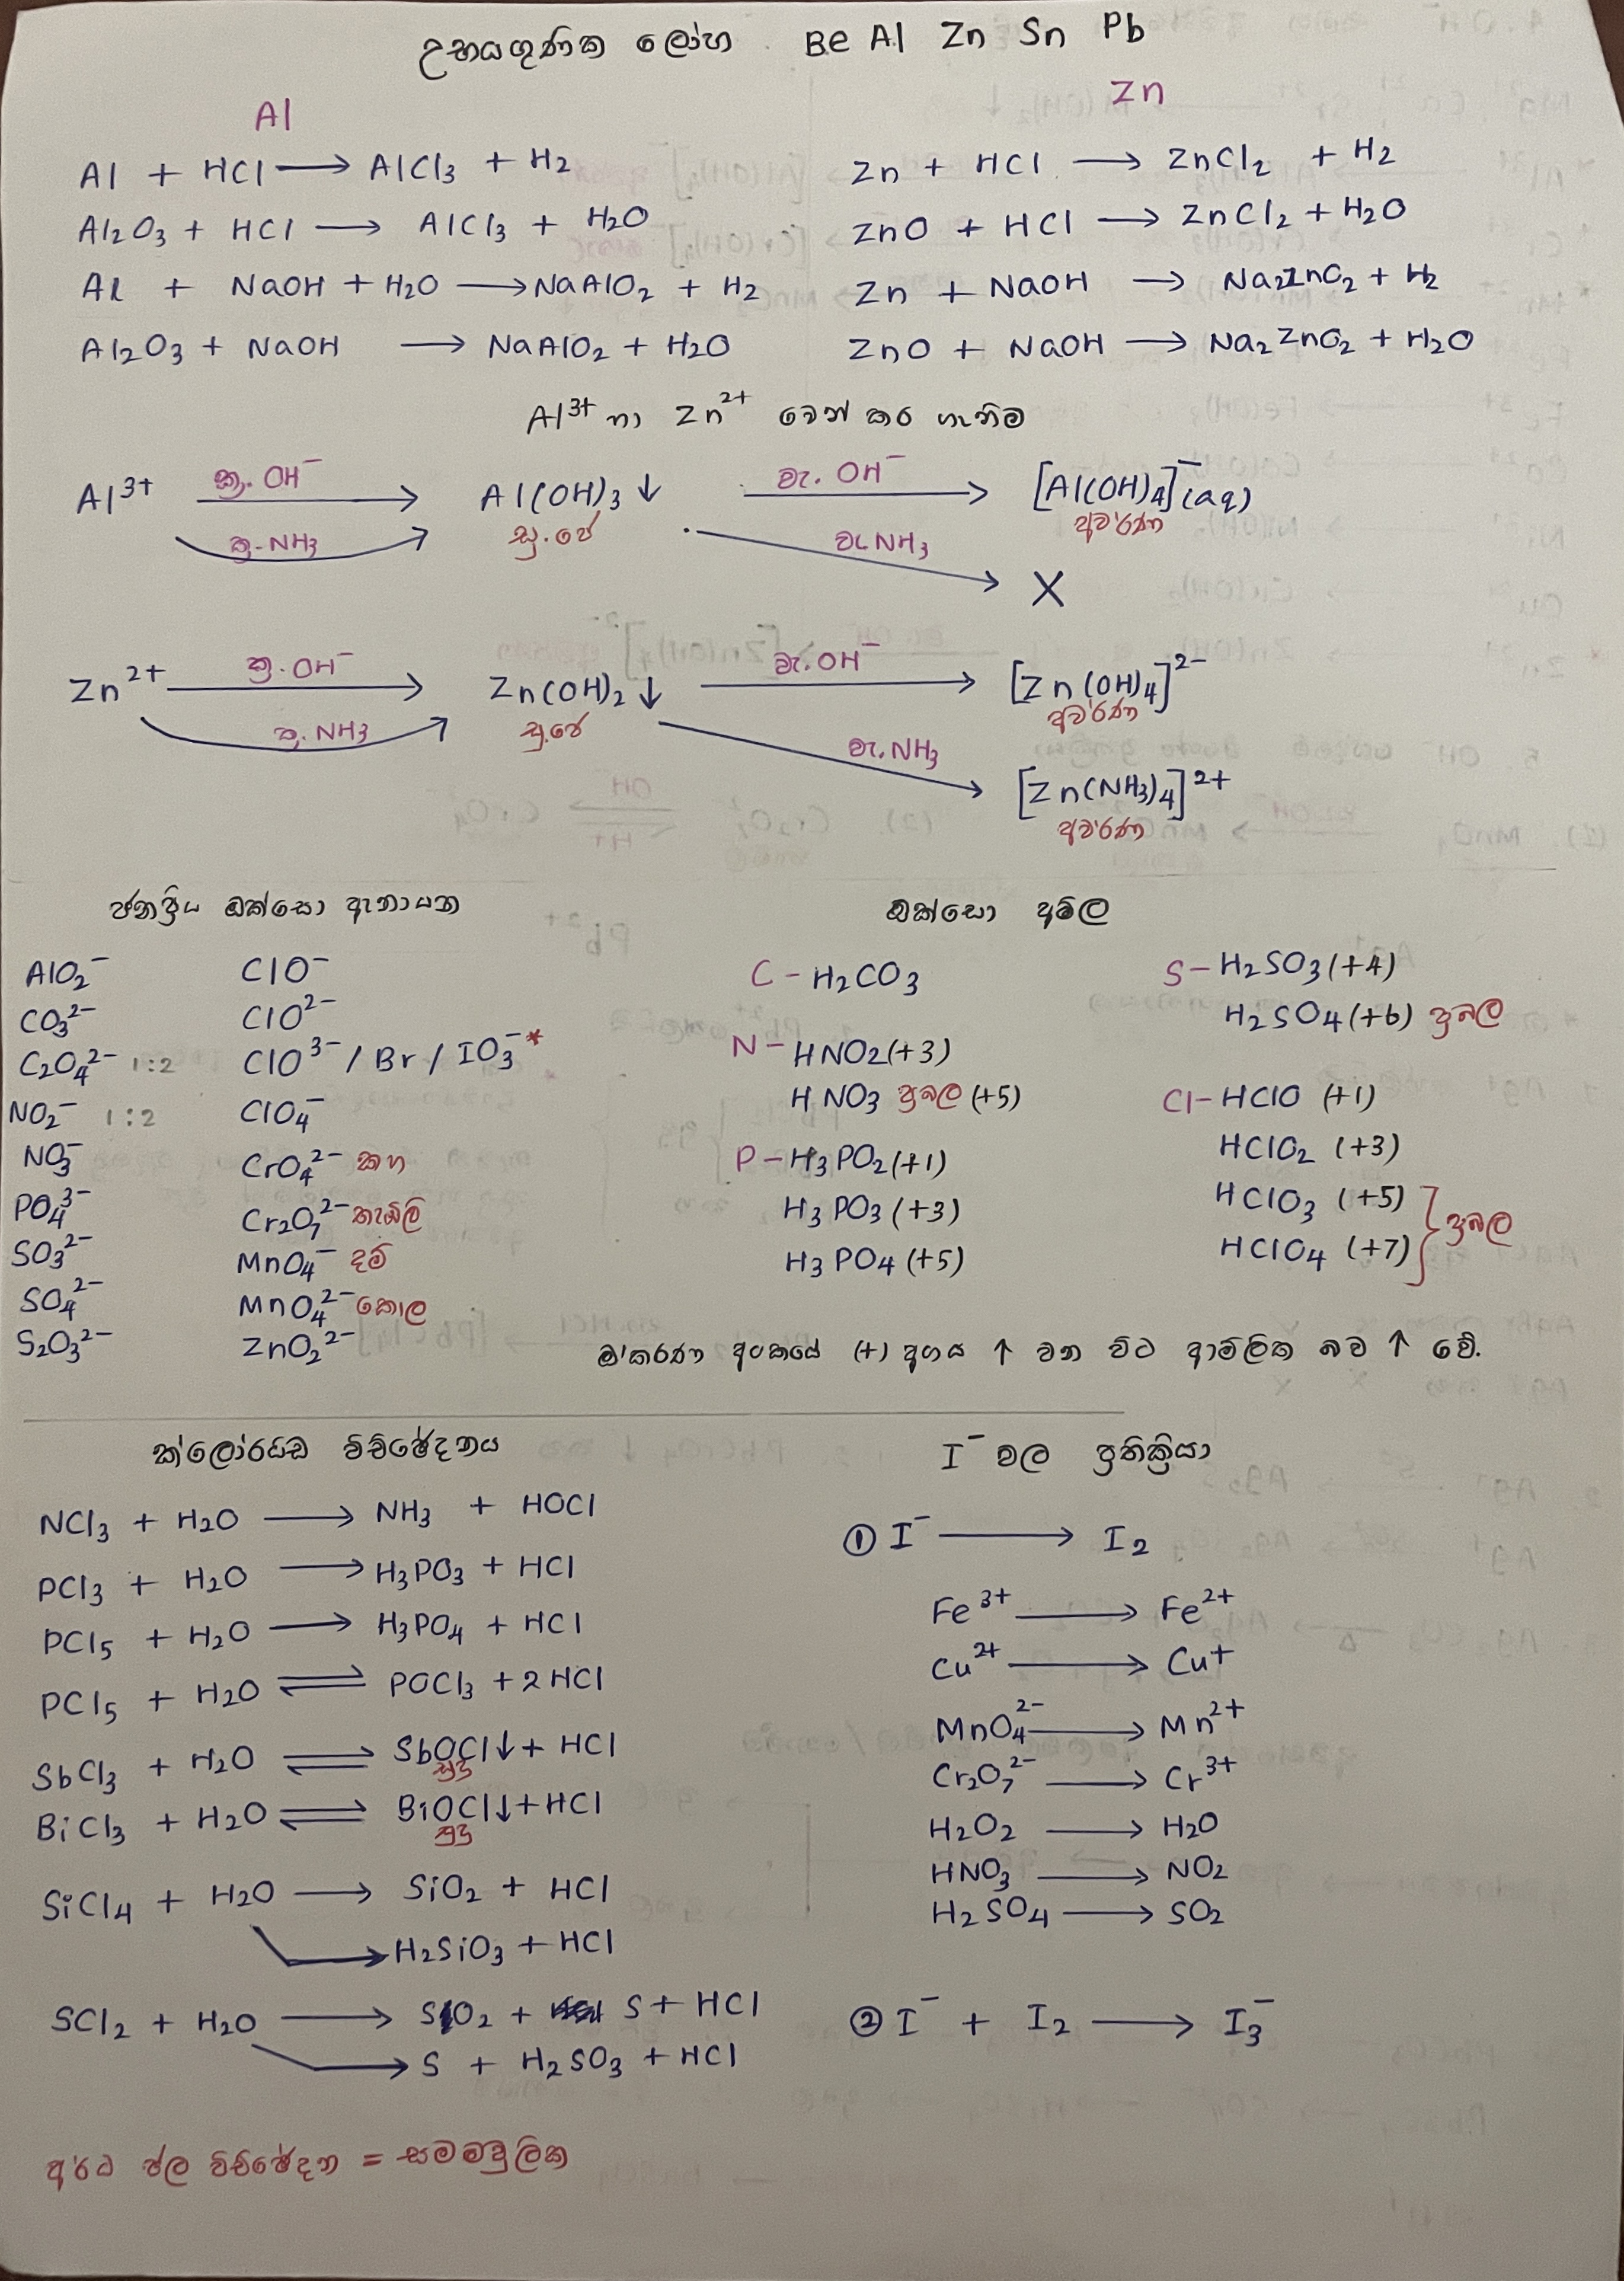 උභයගුණික ලෝහ . Be Al Zn Sn Pb
Al
Al + HCl → AlCl₃ + H₂
Al₂O₃ + HCl → AlCl₃ + H₂O
Al + NaOH + H₂O → NaAlO₂ + H₂
Al₂O₃ + NaOH → NaAlO₂ + H₂O
Zn
Zn + HCl → ZnCl₂ + H₂
ZnO + HCl → ZnCl₂ + H₂O
Zn + NaOH → Na₂ZnO₂ + H₂
ZnO + NaOH → Na₂ZnO₂ + H₂O
Al³⁺ හා Zn²⁺ වෙන් කර ගැනීම
Al³⁺ ක්‍ර. OH⁻ → Al(OH)₃ ↓ වැ. OH⁻ → [Al(OH)₄]⁻(aq)
සු.පේ අවර්ණ
ක්‍ර. NH₃ වැ. NH₃ → X
Zn²⁺ ක්‍ර. OH⁻ → Zn(OH)₂ ↓ වැ. OH⁻ → [Zn(OH)₄]²⁻
සු.පේ අවර්ණ
ක්‍ර. NH₃ වැ. NH₃ → [Zn(NH₃)₄]²⁺
අවර්ණ
ජනප්‍රිය ඔක්සො ඇනායන
AlO₂⁻
CO₃²⁻
C₂O₄²⁻ 1:2
NO₂⁻ 1:2
NO₃⁻
PO₄³⁻
SO₃²⁻
SO₄²⁻
S₂O₃²⁻
ClO⁻
ClO²⁻
ClO³⁻ / Br / IO₃⁻ *
ClO₄⁻
CrO₄²⁻ කහ
Cr₂O₇²⁻ තැඹිලි
MnO₄⁻ දම්
MnO₄²⁻ කොල
ZnO₂²⁻
ඔක්සො අම්ල
C – H₂CO₃
N – HNO₂ (+3)
HNO₃ ප්‍රබල (+5)
P – H₃PO₂ (+1)
H₃PO₃ (+3)
H₃PO₄ (+5)
S – H₂SO₃ (+4)
H₂SO₄ (+6) ප්‍රබල
Cl – HClO (+1)
HClO₂ (+3)
HClO₃ (+5)
HClO₄ (+7) } ප්‍රබල
ඔ'කරණ අංකයේ (+) අගය ↑ වන විට ආම්ලික බව ↑ වේ.
ක්ලෝරයිඩ විච්ඡේදනය
NCl₃ + H₂O → NH₃ + HOCl
PCl₃ + H₂O → H₃PO₃ + HCl
PCl₅ + H₂O → H₃PO₄ + HCl
PCl₅ + H₂O ⇌ POCl₃ + 2HCl
SbCl₃ + H₂O ⇌ SbOCl↓ + HCl
සුදු
BiCl₃ + H₂O ⇌ BiOCl↓ + HCl
සුදු
SiCl₄ + H₂O → SiO₂ + HCl
→ H₂SiO₃ + HCl
SCl₂ + H₂O → SO₂ + S + HCl
→ S + H₂SO₃ + HCl
අර්ධ ජල විච්ඡේදන = සමමවුලික
I⁻ වල ප්‍රතික්‍රියා
① I⁻ → I₂
Fe³⁺ → Fe²⁺
Cu²⁺ → Cu⁺
MnO₄²⁻ → Mn²⁺
Cr₂O₇²⁻ → Cr³⁺
H₂O₂ → H₂O
HNO₃ → NO₂
H₂SO₄ → SO₂
② I⁻ + I₂ → I₃⁻